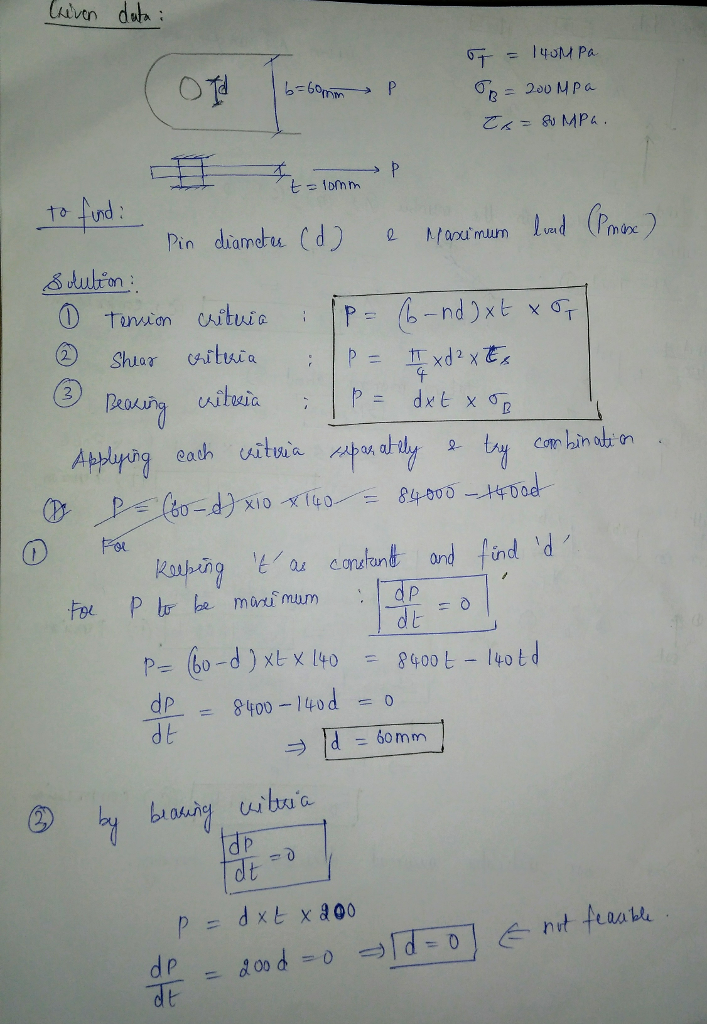 Given data :
d b=60mm → P
σT = 140MPa
σB = 200 MPa
τs = 80 MPa.
t = 10mm → P
to find :
Pin diameter (d) & Maximum load (Pmax)
Solution :
① Tension criteria : P = (b-nd)xt x σT
② Shear criteria : P = π/4 xd² x τs
③ Bearing criteria : P = dxt x σB
Applying each criteria separately & try combination.
① P = (60-d) x10 x140 = 84000 - 1400d
① For
Keeping 't' as constant and find 'd'
For P to be maximum : dP/dt = 0
P= (60-d) xt x 140 = 8400t - 140td
dP/dt = 8400-140d = 0
⇒ d = 60mm
② by bearing criteria
dP/dt =0
P = dxt x 200
dP/dt = 200d =0 ⇒ d=0 ⇐ not feasible.